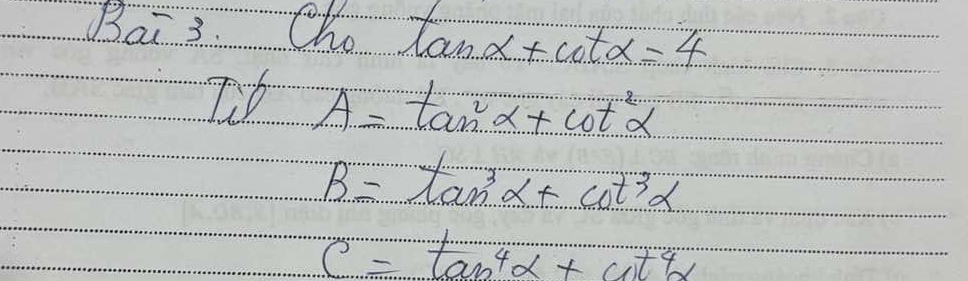 Bài 3. Cho tanα + cotα = 4
A = tan²α + cot²α
B = tan³α + cot³α
C = tan⁴α + cot⁴α